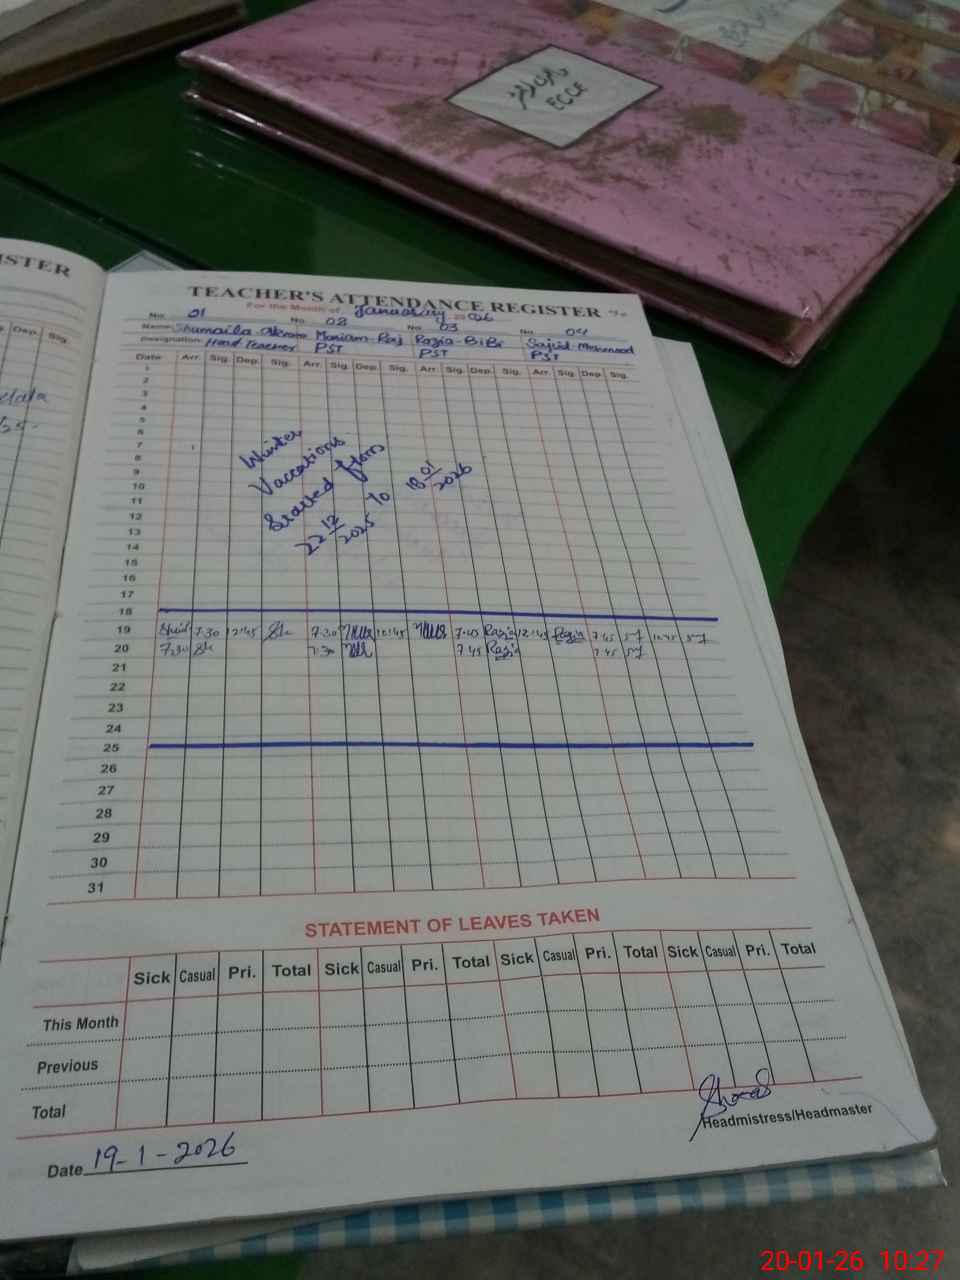 ECCE
ISTER
Dep. Sig.
TEACHER'S ATTENDANCE REGISTER
For the Month of January 2026
No. 01 No. 02 No. 03 No. 04
Name Shumaila Akram Mariam Raj Razia BiBi Sajid Mehmood
Designation Head Teacher PST PST PST
Date Arr. Sig. Dep. Sig. Arr. Sig. Dep. Sig. Arr. Sig. Dep. Sig. Arr. Sig. Dep. Sig.
1
2
3
4
5
6
7
8
9
10
11
12
13
14
15
16
17
Winter
Vaccations
Started from
22 12/2025 to 18 01/2026
18
19 7.30 12:45 7.30 12:45 7.45 Razia 12:45 Razia 7.45 SJ 12.45 SJ
20 7.30 7.30 7.45 Razia 7.45 SJ
21
22
23
24
25
26
27
28
29
30
31
STATEMENT OF LEAVES TAKEN
Sick Casual Pri. Total Sick Casual Pri. Total Sick Casual Pri. Total Sick Casual Pri. Total
This Month
Previous
Total
Headmistress/Headmaster
Date 19-1-2026
20-01-26 10:27